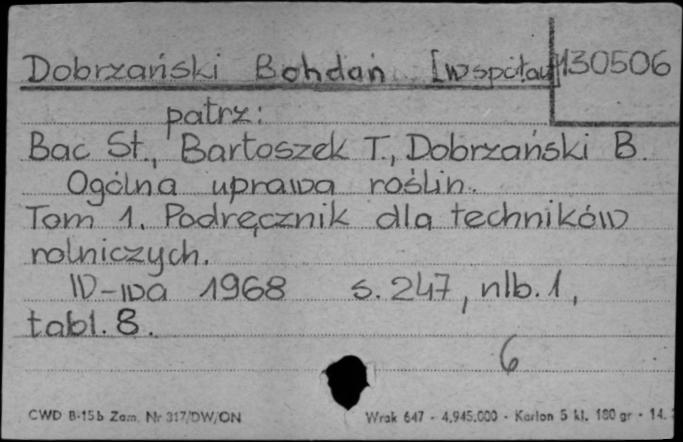 Dobrzański Bohdan [współau 130506
patrz:
Bac St., Bartoszek T., Dobrzański B.
Ogólna uprawa roślin.
Tom 1. Podręcznik dla techników
rolniczych.
W-wa 1968 s. 247, nlb. 1,
tabl. 8.
6
CWD B-15b Zam. Nr 317/DW/ON Wrak 647 - 4.945.000 - Karton 5 kl. 180 gr - 14.